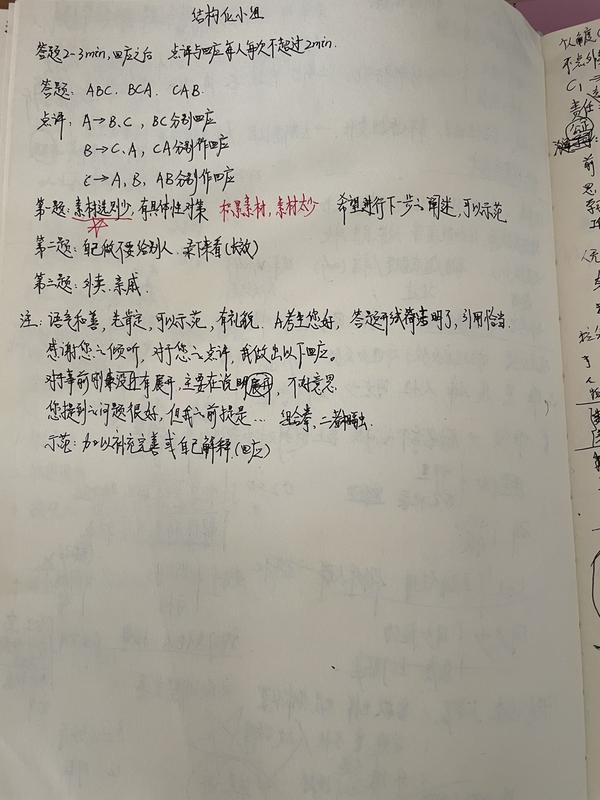 结构化小组
答题2-3min,回应之后 点评与回应每人每次不超过2min.
答题: ABC. BCA. CAB.
点评: A→B.C, BC分别回应
B→C.A, CA分别作回应
C→A, B, AB分别作回应
第一题:素材选别少,有具体性对策 积累素材,素材太少 希望进行下一步的阐述,可以示范
第二题:自己做不要给别人.
第三题:外卖.亲戚.
注:语气和善,先肯定,可以示范,有礼貌. A考生您好, 答题开线简洁明了,引用恰当.
感谢您的倾听,对于您的点评,我做出以下回应。
对于事前刚来没有展开,主要在说明展开,不好意思
您提到的问题很好,但我的前提是… 组合拳,二者
示范:加以补充完善或自己解释.(回应)
个人角度
不
C₁ →
责任
公正
前
思
人